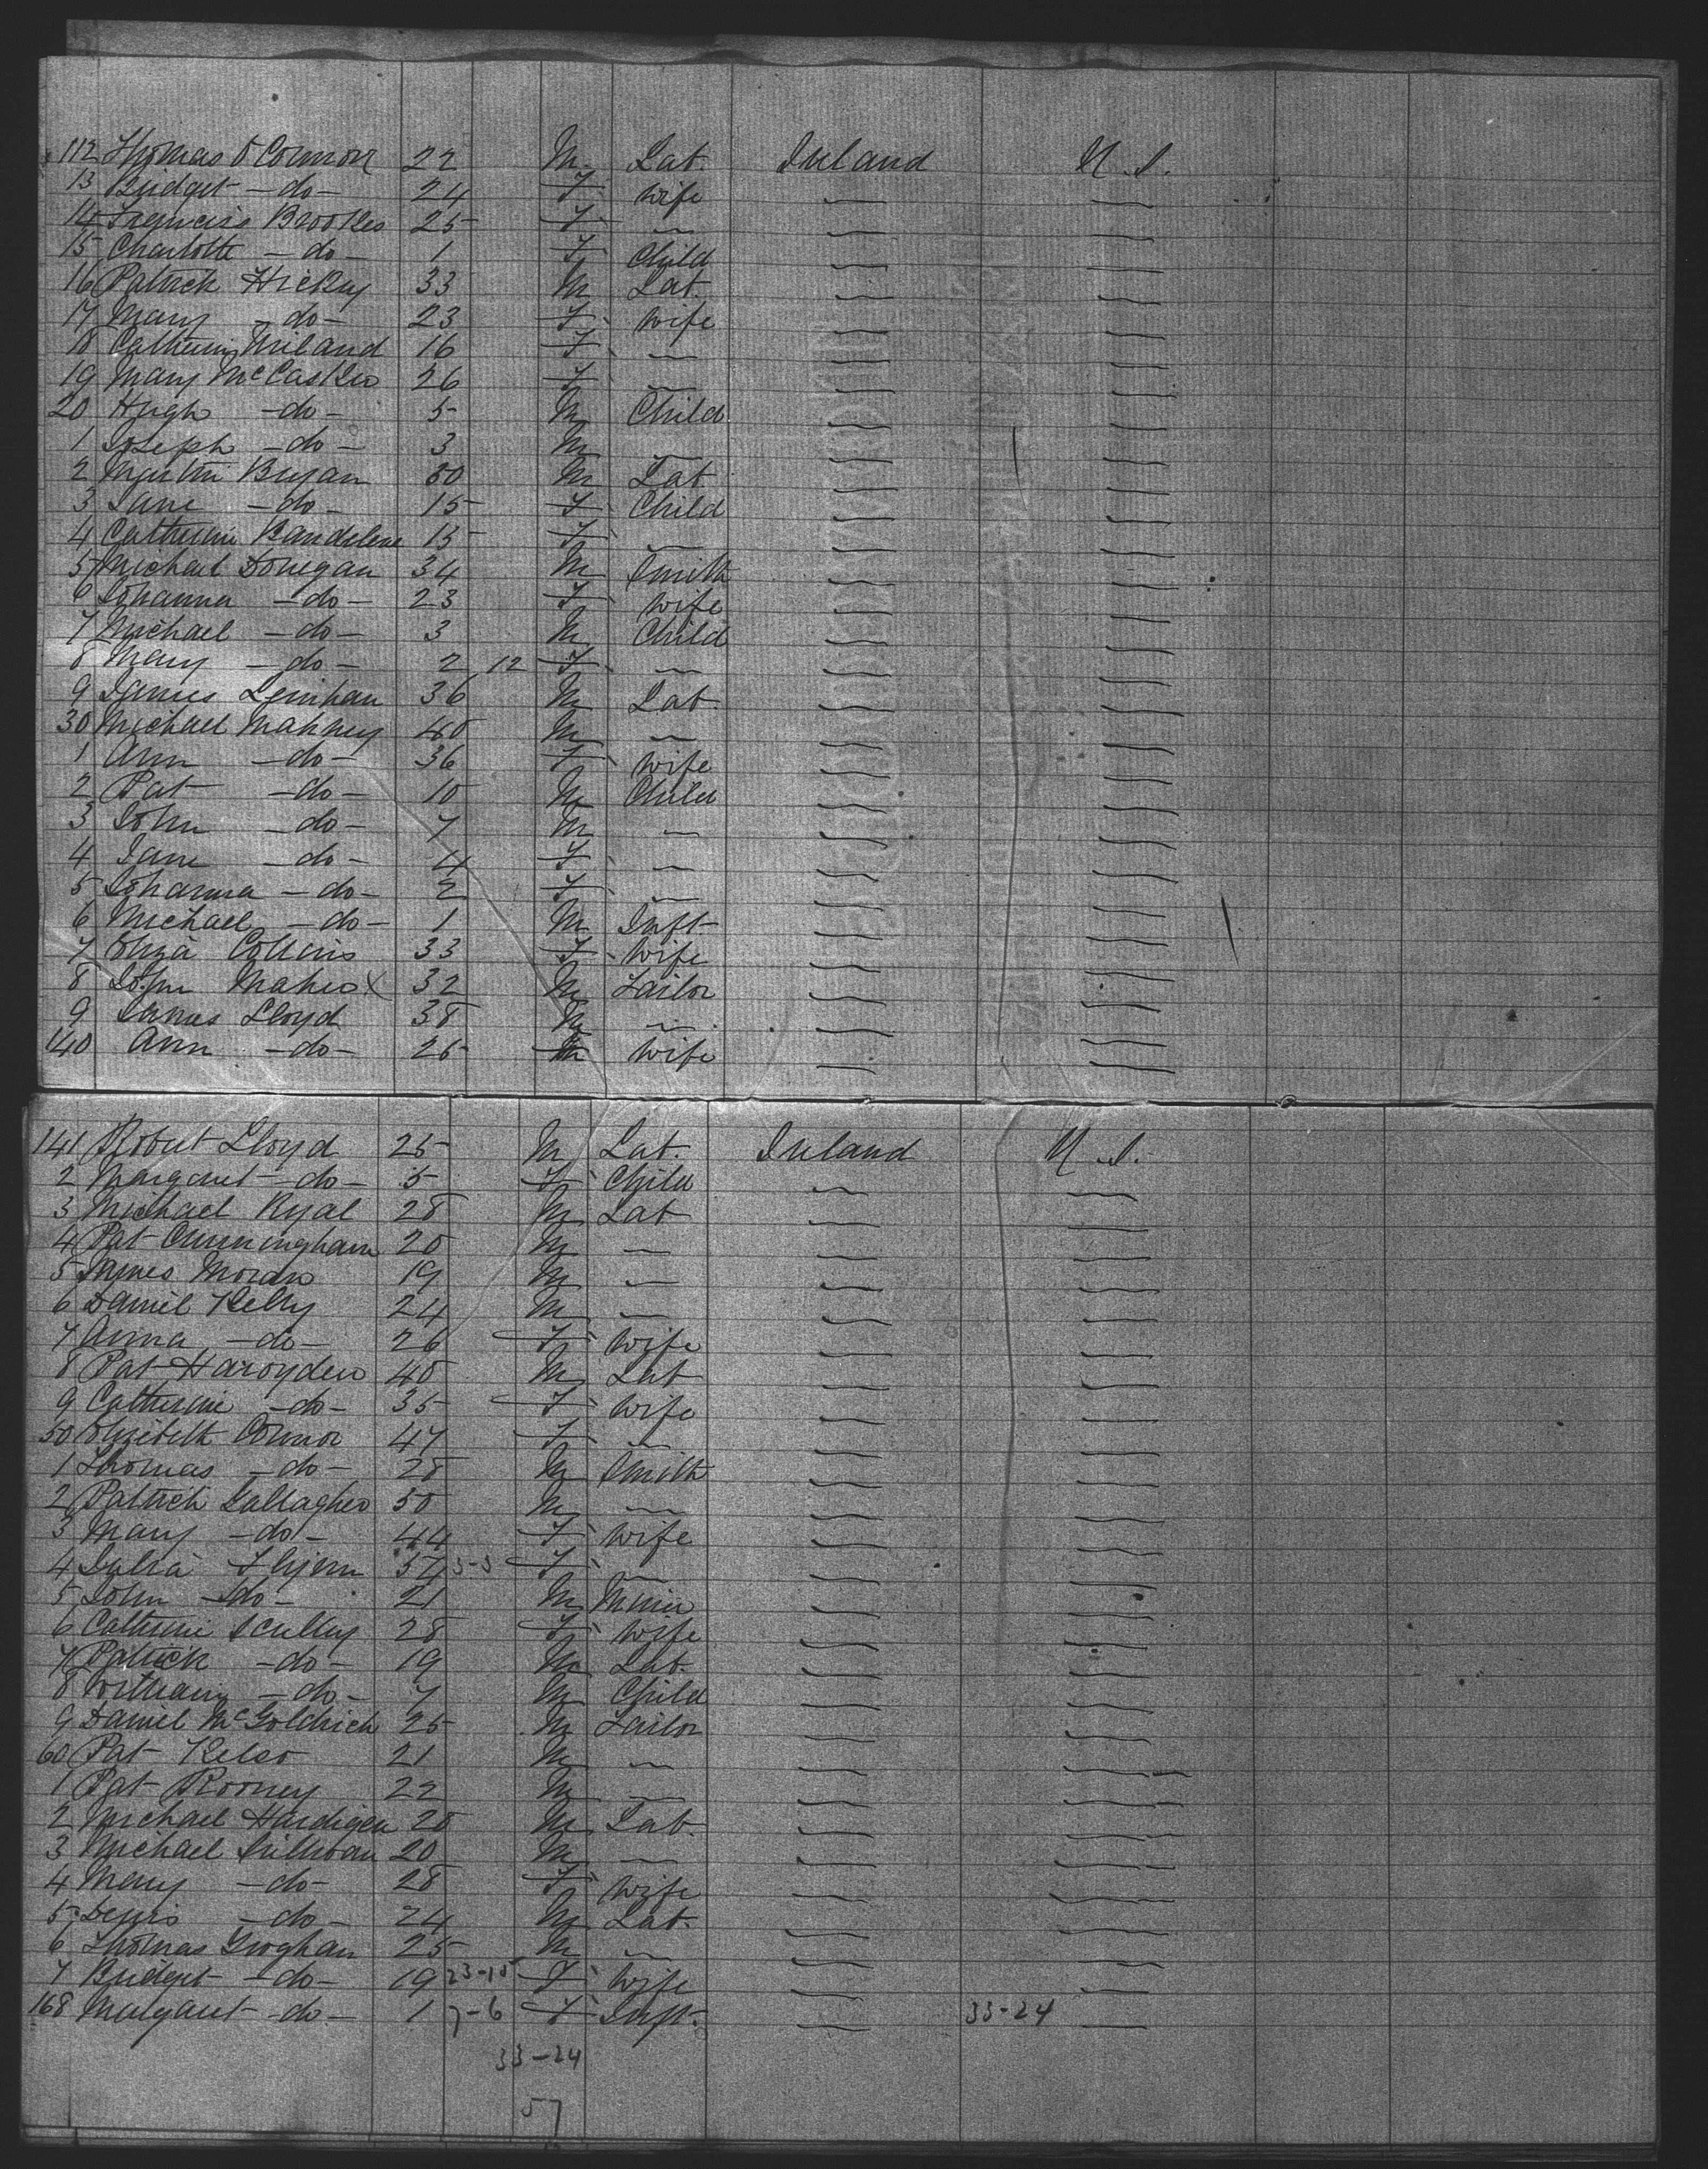 112 Thomas O Connor 22 M Lab. Ireland U.S.
13 Bridget - do - 24 F wife
14 Francis Brookes 25 F
15 Charlotte - do - 1 F Child
16 Patrick Hickey 33 M Lab.
17 Mary - do - 23 F wife
18 Catherine 16 F
19 Mary McCasker 26 F
20 Hugh - do - 5 M Child
1 Joseph - do - 3 M
2 Martin Bryan M Lab
3 Jane - do - 15 F Child
4 Catherine F
5 Michael Donegan 34 M Smith
6 Johanna - do - 23 F wife
7 Michael - do - 3 M Child
8 Mary - do - 2 12 F
9 James Lenihan 36 M Lab
30 Michael Mahney 40 M
1 Ann - do - 36 F wife
2 Pat - do - 10 M Child
3 John - do - 7 M
4 Jane - do - 4 F
5 Johanna - do - 2 F
6 Michael - do - 1 M Inft
7 Eliza Collins 33 F wife
8 John Maher X 32 M Tailor
9 James Lloyd 38 M
140 Ann - do - 25 wife
141 Robert Lloyd 25 M Lab. Ireland U.S.
2 Margaret - do - 5 F Child
3 Michael Ryal 28 M Lab
4 Pat Cunningham 20 M
5 James 19 M
6 Daniel Kelly 24 M
7 Anna - do - 26 F wife
8 Pat 40 M Lab
9 Catherine - do - 35 F wife
50 Elizibeth Connor 47 F
1 Thomas - do - 28 M Smith
2 Patrick Gallagher 50 M
3 Mary - do - 44 F wife
4 Julia F
5 John - do - 21 M Miner
6 Catherine Sculley 28 F wife
7 Patrick - do - 19 M Lab.
8 William - do - 7 M Child
9 Daniel McGoldrick 25 M Tailor
60 Pat Kelso 21 M
1 Pat Rooney 22 M
2 Michael Hardigan 20 M Lab.
3 Michael Sullivan 20 M
4 Mary - do - 28 F wife
5 Denis - do - 24 M Lab.
6 Thomas Groghan 25 M
7 Bridget - do - 19 23-18 F wife
168 Margaret - do - 1 7-6 F Inft. 33-24
33-24
57